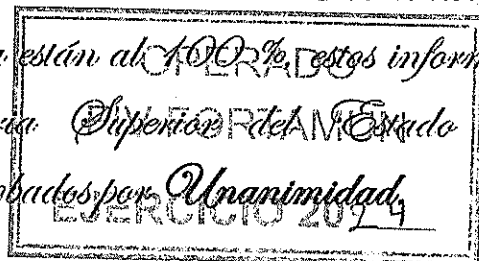 están al 100 %, estos inform
OPERADO
Superior del Estado
FORTAMUN
bados por Unanimidad,
EJERCICIO 2024